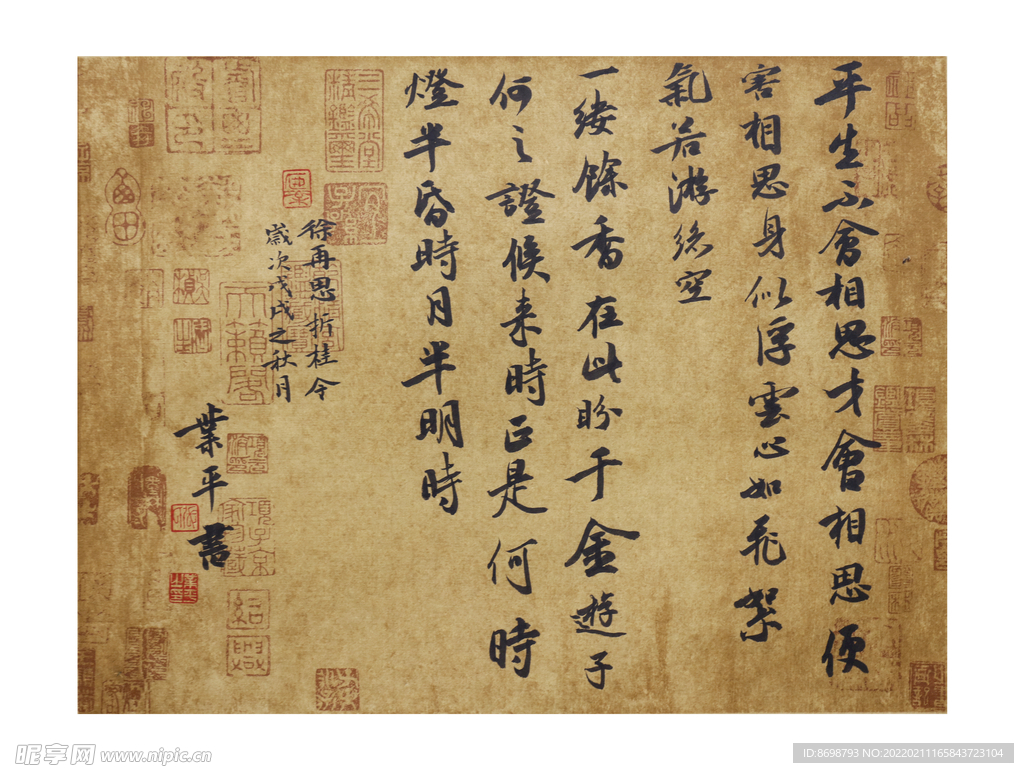 平生不會相思才會相思便
害相思身似浮雲心如飛絮
氣若游絲空
一縷餘香在此盼千金遊子
何之證候来時正是何時
燈半昏時月半明時
徐再思折桂令
歲次戊戌之秋月
業平書
三希堂精鑑璽
宜子孫
天籟閣
昵享网 www.nipic.cn
ID:8698793 NO:20220211165843723104